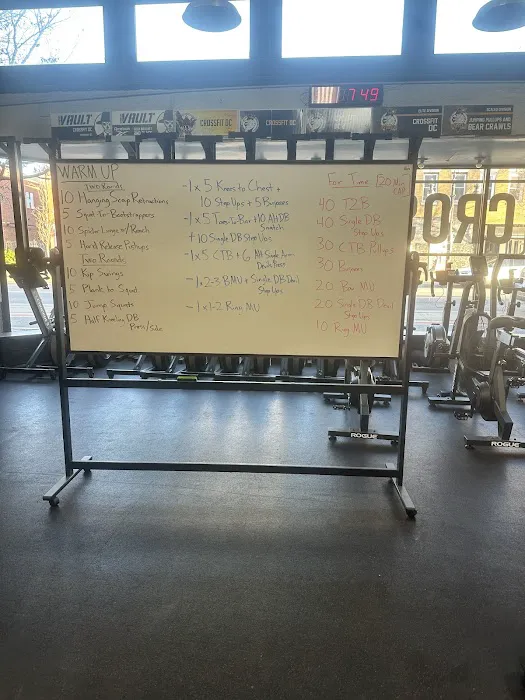 7:49
VAULT
VAULT
CROSSFIT DC
CROSSFIT DC
CROSSFIT DC
JUMPING PULLUPS AND
BEAR CRAWLS
WARM UP
Two Rounds
10 Hanging Scap Retractions
5 Squat Bootstrappers
10 Spider Lunges w/ Reach
5 Hand Release Pushups
Two Rounds
10 Kip Swings
5 Plank to Squat
10 Jump Squats
5 Half Kneeling DB
Press/side
-1 x 5 Knees to Chest +
10 Step Ups + 5 Burpees
-1 x 5 Toes To Bar + 10 Alt DB
Snatch
+ 10 Single DB Step Ups
-1 x 5 CTB + 6 Alt Single Arm
Devils Press
-1 x 2-3 BMU + Single DB Devil
Step Ups
-1 x 1-2 Ring MU
For Time (20 Min
CAP
40 T2B
40 Single DB
Step Ups
30 CTB Pullups
30 Burpees
20 Bar MU
20 Single DB Devil
Step Ups
10 Ring MU
ROGUE
ROGUE